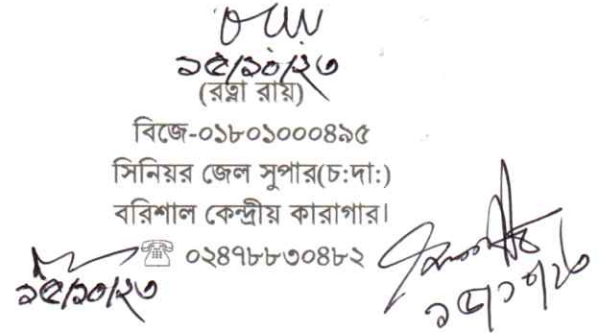 ১৫/১০/২৩
(রত্না রায়)
বিজে-০১৮০১০০০৪৯৫
সিনিয়র জেল সুপার(চ:দা:)
বরিশাল কেন্দ্রীয় কারাগার।
☎ ০২৪৭৮৮৩০৪৮২
১৫/১০/২৩
১৫/১০/২৩